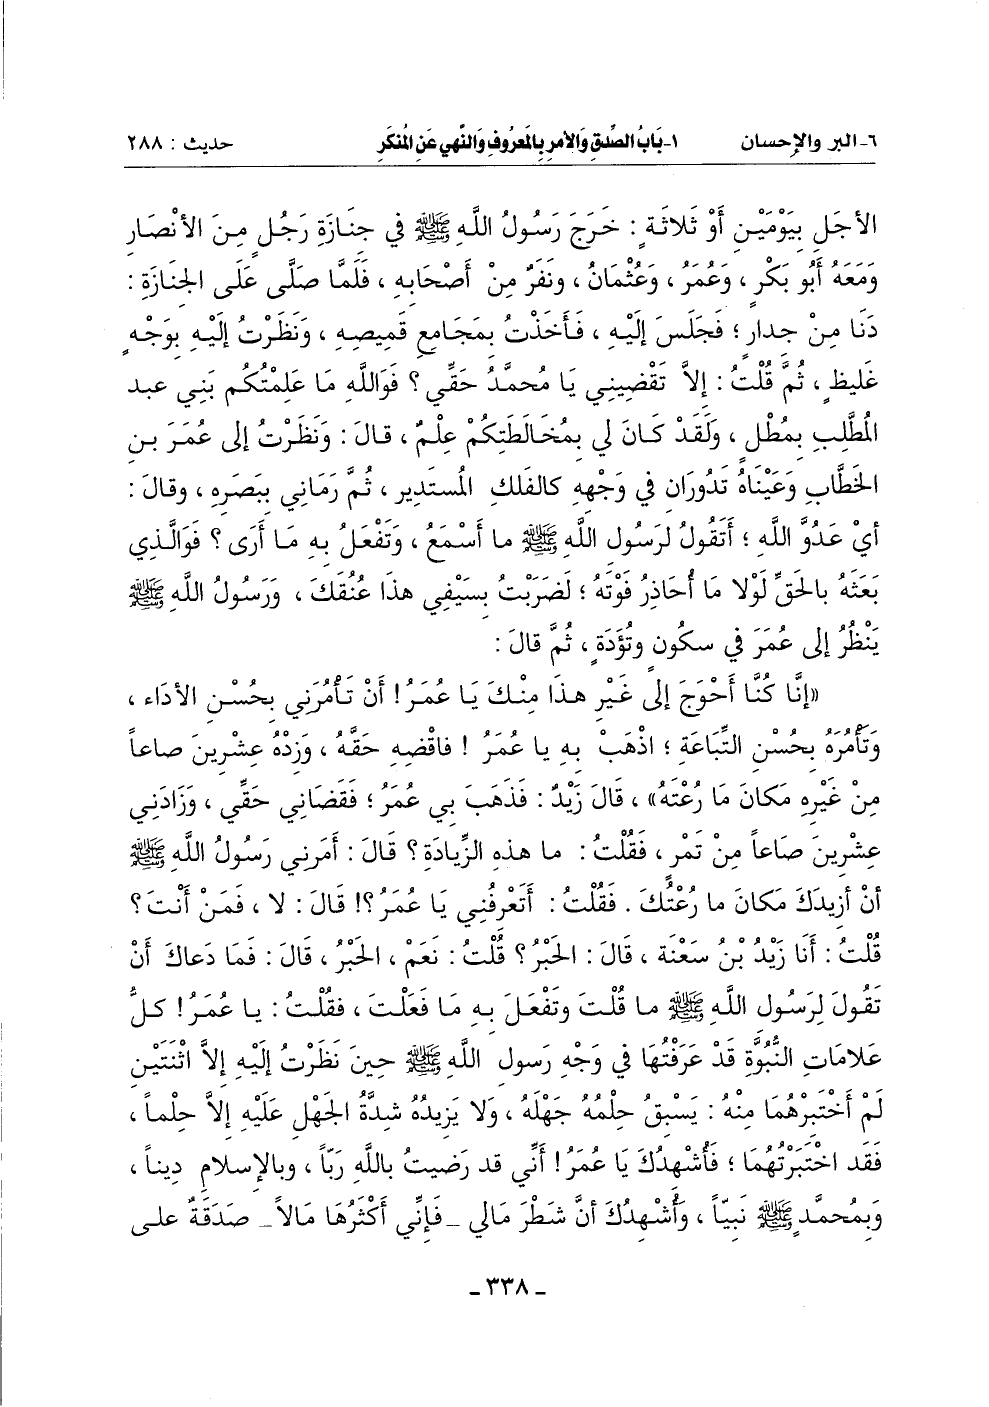 ٦- البر والإحسان ١- بَابُ الصِّدْقِ وَالأَمرِ بِالمَعرُوفِ وَالنَّهيِ عَنِ المُنكَرِ حديث : ٢٨٨
الأجَلِ بِيَوْمَيْنِ أَوْ ثَلاثَةٍ : خَرَجَ رَسُولُ اللَّهِ ﷺ في جِنَازَةِ رَجُلٍ مِنَ الأنْصَارِ
وَمَعَهُ أَبُو بَكْرٍ ، وَعُمَرُ ، وَعُثْمَانُ ، ونَفَرٌ مِنْ أَصْحَابِهِ ، فَلَمَّا صَلَّى عَلَى الجِنَازَةِ :
دَنَا مِنْ جِدارٍ ؛ فَجَلَسَ إلَيْهِ ، فَأَخَذْتُ بِمَجَامِعِ قَمِيصِهِ ، وَنَظَرْتُ إلَيْهِ بِوَجْهٍ
غَلِيظٍ ، ثُمَّ قُلْتُ : إلاَّ تَقْضِيني يَا مُحمَّدُ حَقِّي ؟ فَوَاللَّهِ مَا عَلِمْتُكُم بَنِي عبد
المُطَّلِبِ بِمُطْلٍ ، وَلَقَدْ كَانَ لي بِمُخَالَطَتِكُمْ عِلْمٌ ، قالَ : وَنَظَرْتُ إلى عُمَرَ بنِ
الخَطَّابِ وَعَيْنَاهُ تَدُورَانِ في وَجْهِهِ كالفَلَكِ المُستَدِيرِ ، ثُمَّ رَمَانِي بِبَصَرِهِ ، وقالَ :
أيْ عَدُوَّ اللَّهِ ؛ أَتَقُولُ لرَسُولِ اللَّهِ ﷺ ما أَسْمَعُ ، وَتَفْعَلُ بِهِ مَا أَرَى ؟ فَوَالَّذِي
بَعَثَهُ بالحَقِّ لَوْلا مَا أُحَاذِرُ فَوْتَهُ ؛ لَضَرَبْتُ بِسَيْفِي هذَا عُنُقَكَ ، وَرَسُولُ اللَّهِ ﷺ
يَنْظُرُ إلى عُمَرَ في سكُونٍ وتُؤَدَةٍ ، ثُمَّ قالَ :
«إنَّا كُنَّا أَحْوَجَ إلَى غَيْرِ هذَا مِنْكَ يَا عُمَرُ ! أَنْ تَأْمُرَنِي بِحُسْنِ الأدَاءِ ،
وَتَأْمُرَهُ بِحُسْنِ التِّبَاعَةِ ؛ اذْهَبْ بِهِ يا عُمَرُ ! فاقْضِهِ حَقَّهُ ، وَزِدْهُ عِشْرِينَ صاعاً
مِنْ غَيْرِهِ مَكَانَ مَا رُعْتَهُ» ، قَالَ زَيْدٌ : فَذَهَبَ بِي عُمَرُ ؛ فَقَضَانِي حَقِّي ، وَزَادَنِي
عِشْرِينَ صَاعاً مِنْ تَمْرٍ ، فَقُلْتُ : ما هذِهِ الزِّيادَةِ ؟ قَالَ : أَمَرَنِي رَسُولُ اللَّهِ ﷺ
أنْ أزِيدَكَ مَكَانَ ما رُعْتُكَ . فَقُلْتُ : أَتَعْرِفُنِي يَا عُمَرُ ؟! قَالَ : لا ، فَمَنْ أَنْتَ ؟
قُلْتُ : أَنَا زَيْدُ بْنُ سَعْنَةَ ، قَالَ : الحَبْرُ ؟ قُلْتُ : نَعَمْ ، الحَبْرُ ، قَالَ : فَمَا دَعاكَ أَنْ
تَقُولَ لِرَسُولِ اللَّهِ ﷺ ما قُلْتَ وتَفْعَلَ بِهِ مَا فَعَلْتَ ، فقُلْتُ : يا عُمَرُ ! كلُّ
عَلامَاتِ النُّبُوَّةِ قَدْ عَرَفْتُهَا في وَجْهِ رَسولِ اللَّهِ ﷺ حينَ نَظَرْتُ إلَيْهِ إلاَّ اثْنَتَيْنِ
لَمْ أَخْتَبِرْهُمَا مِنْهُ : يَسْبِقُ حِلْمُهُ جَهْلَهُ ، وَلا يَزِيدُهُ شدَّةُ الجَهْلِ عَلَيْهِ إلاَّ حلْماً ،
فَقَد اخْتَبَرْتُهُمَا ؛ فَأُشْهِدُكَ يَا عُمَرُ ! أَنِّي قد رَضِيتُ باللَّهِ رَبّاً ، وبالإسلامِ دِيناً ،
وَبِمُحمَّدٍ ﷺ نَبِيّاً ، وَأُشْهِدُكَ أنَّ شَطْرَ مَالي ـ فَإِنِّي أَكْثَرُهَا مَالاً ـ صَدَقَةٌ على
ـ ٣٣٨ ـ